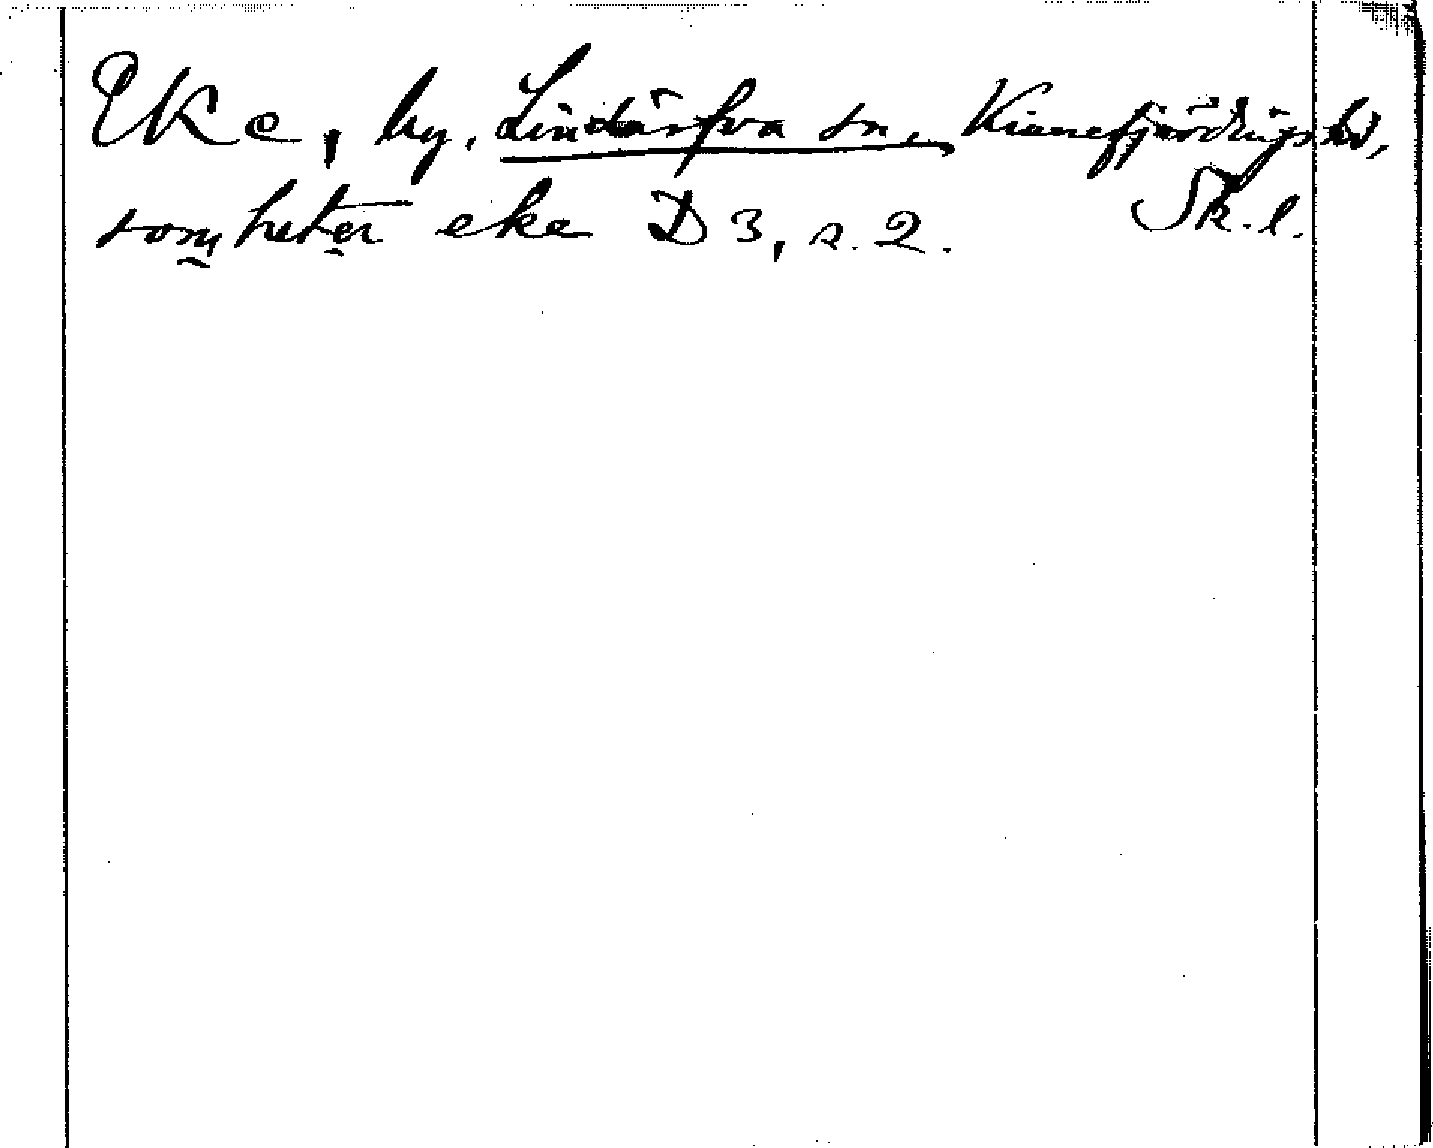 Eke, by, Lindärfva sn, Kinnefjärdings hd,
som heter eke D 3, s. 2. Sk. l.